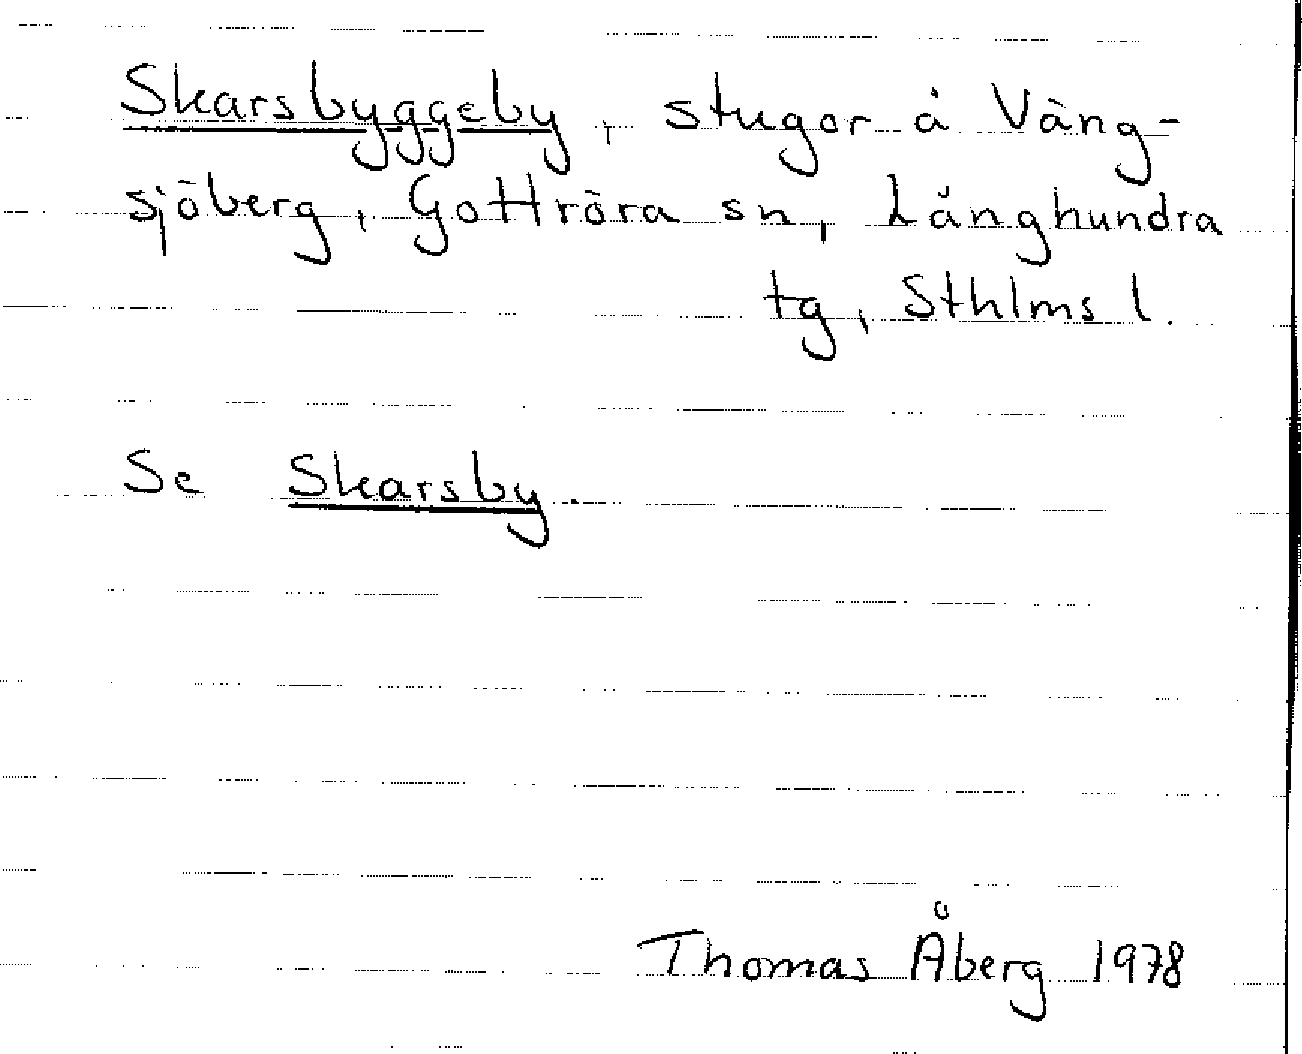 Skarsbyggeby, stugor å Väng-
sjöberg, Gottröra sn, Långhundra
tg, Sthlms l.
Se Skarsby.
Thomas Åberg 1978